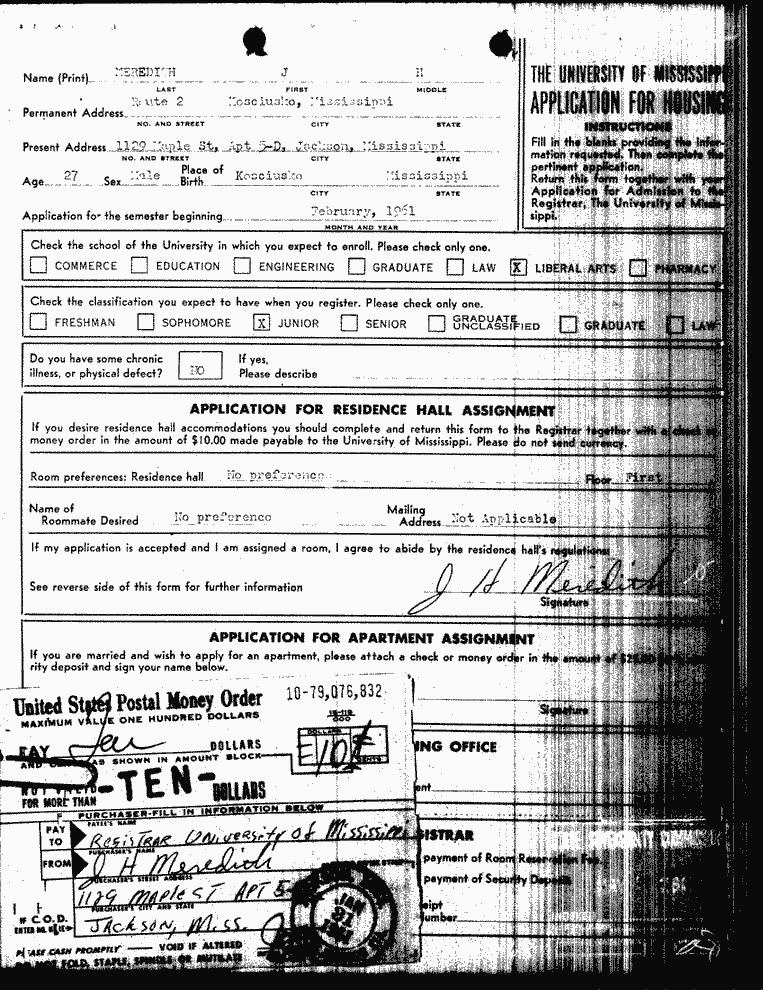 MEREDITH J H
Name (Print)
LAST FIRST MIDDLE
Route 2 Kosciusko, Mississippi
Permanent Address
NO. AND STREET CITY STATE
Present Address 1129 Maple St, Apt 5-D, Jackson, Mississippi
NO. AND STREET CITY STATE
Age 27 Sex Male Place of Birth Kosciusko Mississippi
CITY STATE
Application for the semester beginning February, 1961
MONTH AND YEAR
THE UNIVERSITY OF MISSISSIPPI
APPLICATION FOR HOUSING
INSTRUCTIONS
Fill in the blanks providing the infor-
mation requested. Then complete the
pertinent application.
Return this form together with your
Application for Admission to the
Registrar, The University of Missis-
sippi.
Check the school of the University in which you expect to enroll. Please check only one.
COMMERCE EDUCATION ENGINEERING GRADUATE LAW X LIBERAL ARTS PHARMACY
Check the classification you expect to have when you register. Please check only one.
FRESHMAN SOPHOMORE X JUNIOR SENIOR GRADUATE UNCLASSIFIED GRADUATE LAW
Do you have some chronic
illness, or physical defect? NO
If yes,
Please describe
APPLICATION FOR RESIDENCE HALL ASSIGNMENT
If you desire residence hall accommodations you should complete and return this form to the Registrar together with a check or
money order in the amount of $10.00 made payable to the University of Mississippi. Please do not send currency.
Room preferences: Residence hall No preference Floor First
Name of
Roommate Desired No preference
Mailing
Address Not Applicable
If my application is accepted and I am assigned a room, I agree to abide by the residence hall's regulations:
J H Meredith
See reverse side of this form for further information
Signature
APPLICATION FOR APARTMENT ASSIGNMENT
If you are married and wish to apply for an apartment, please attach a check or money order in the amount of $25.00
rity deposit and sign your name below.
Signature
United States Postal Money Order 10-79,076,832
MAXIMUM VALUE ONE HUNDRED DOLLARS
15-119
000
PAY Ten DOLLARS
AS SHOWN IN AMOUNT BLOCK
DOLLARS CENTS
10
-TEN-
FOR MORE THAN DOLLARS
PURCHASER-FILL IN INFORMATION BELOW
PAYEE'S NAME
PAY TO Registrar University of Mississippi
PURCHASER'S NAME
FROM J H Meredith
PURCHASER'S STREET ADDRESS
1129 Maple St Apt 5-
PURCHASER'S CITY AND STATE
Jackson, Miss.
IF C.O.D.
JAN
PLEASE CASH PROMPTLY VOID IF ALTERED
DO NOT FOLD, STAPLE, SPINDLE OR MUTILATE
ING OFFICE
ent
ISTRAR
payment of Room Reservation Fee
payment of Security Deposit
eipt
umber